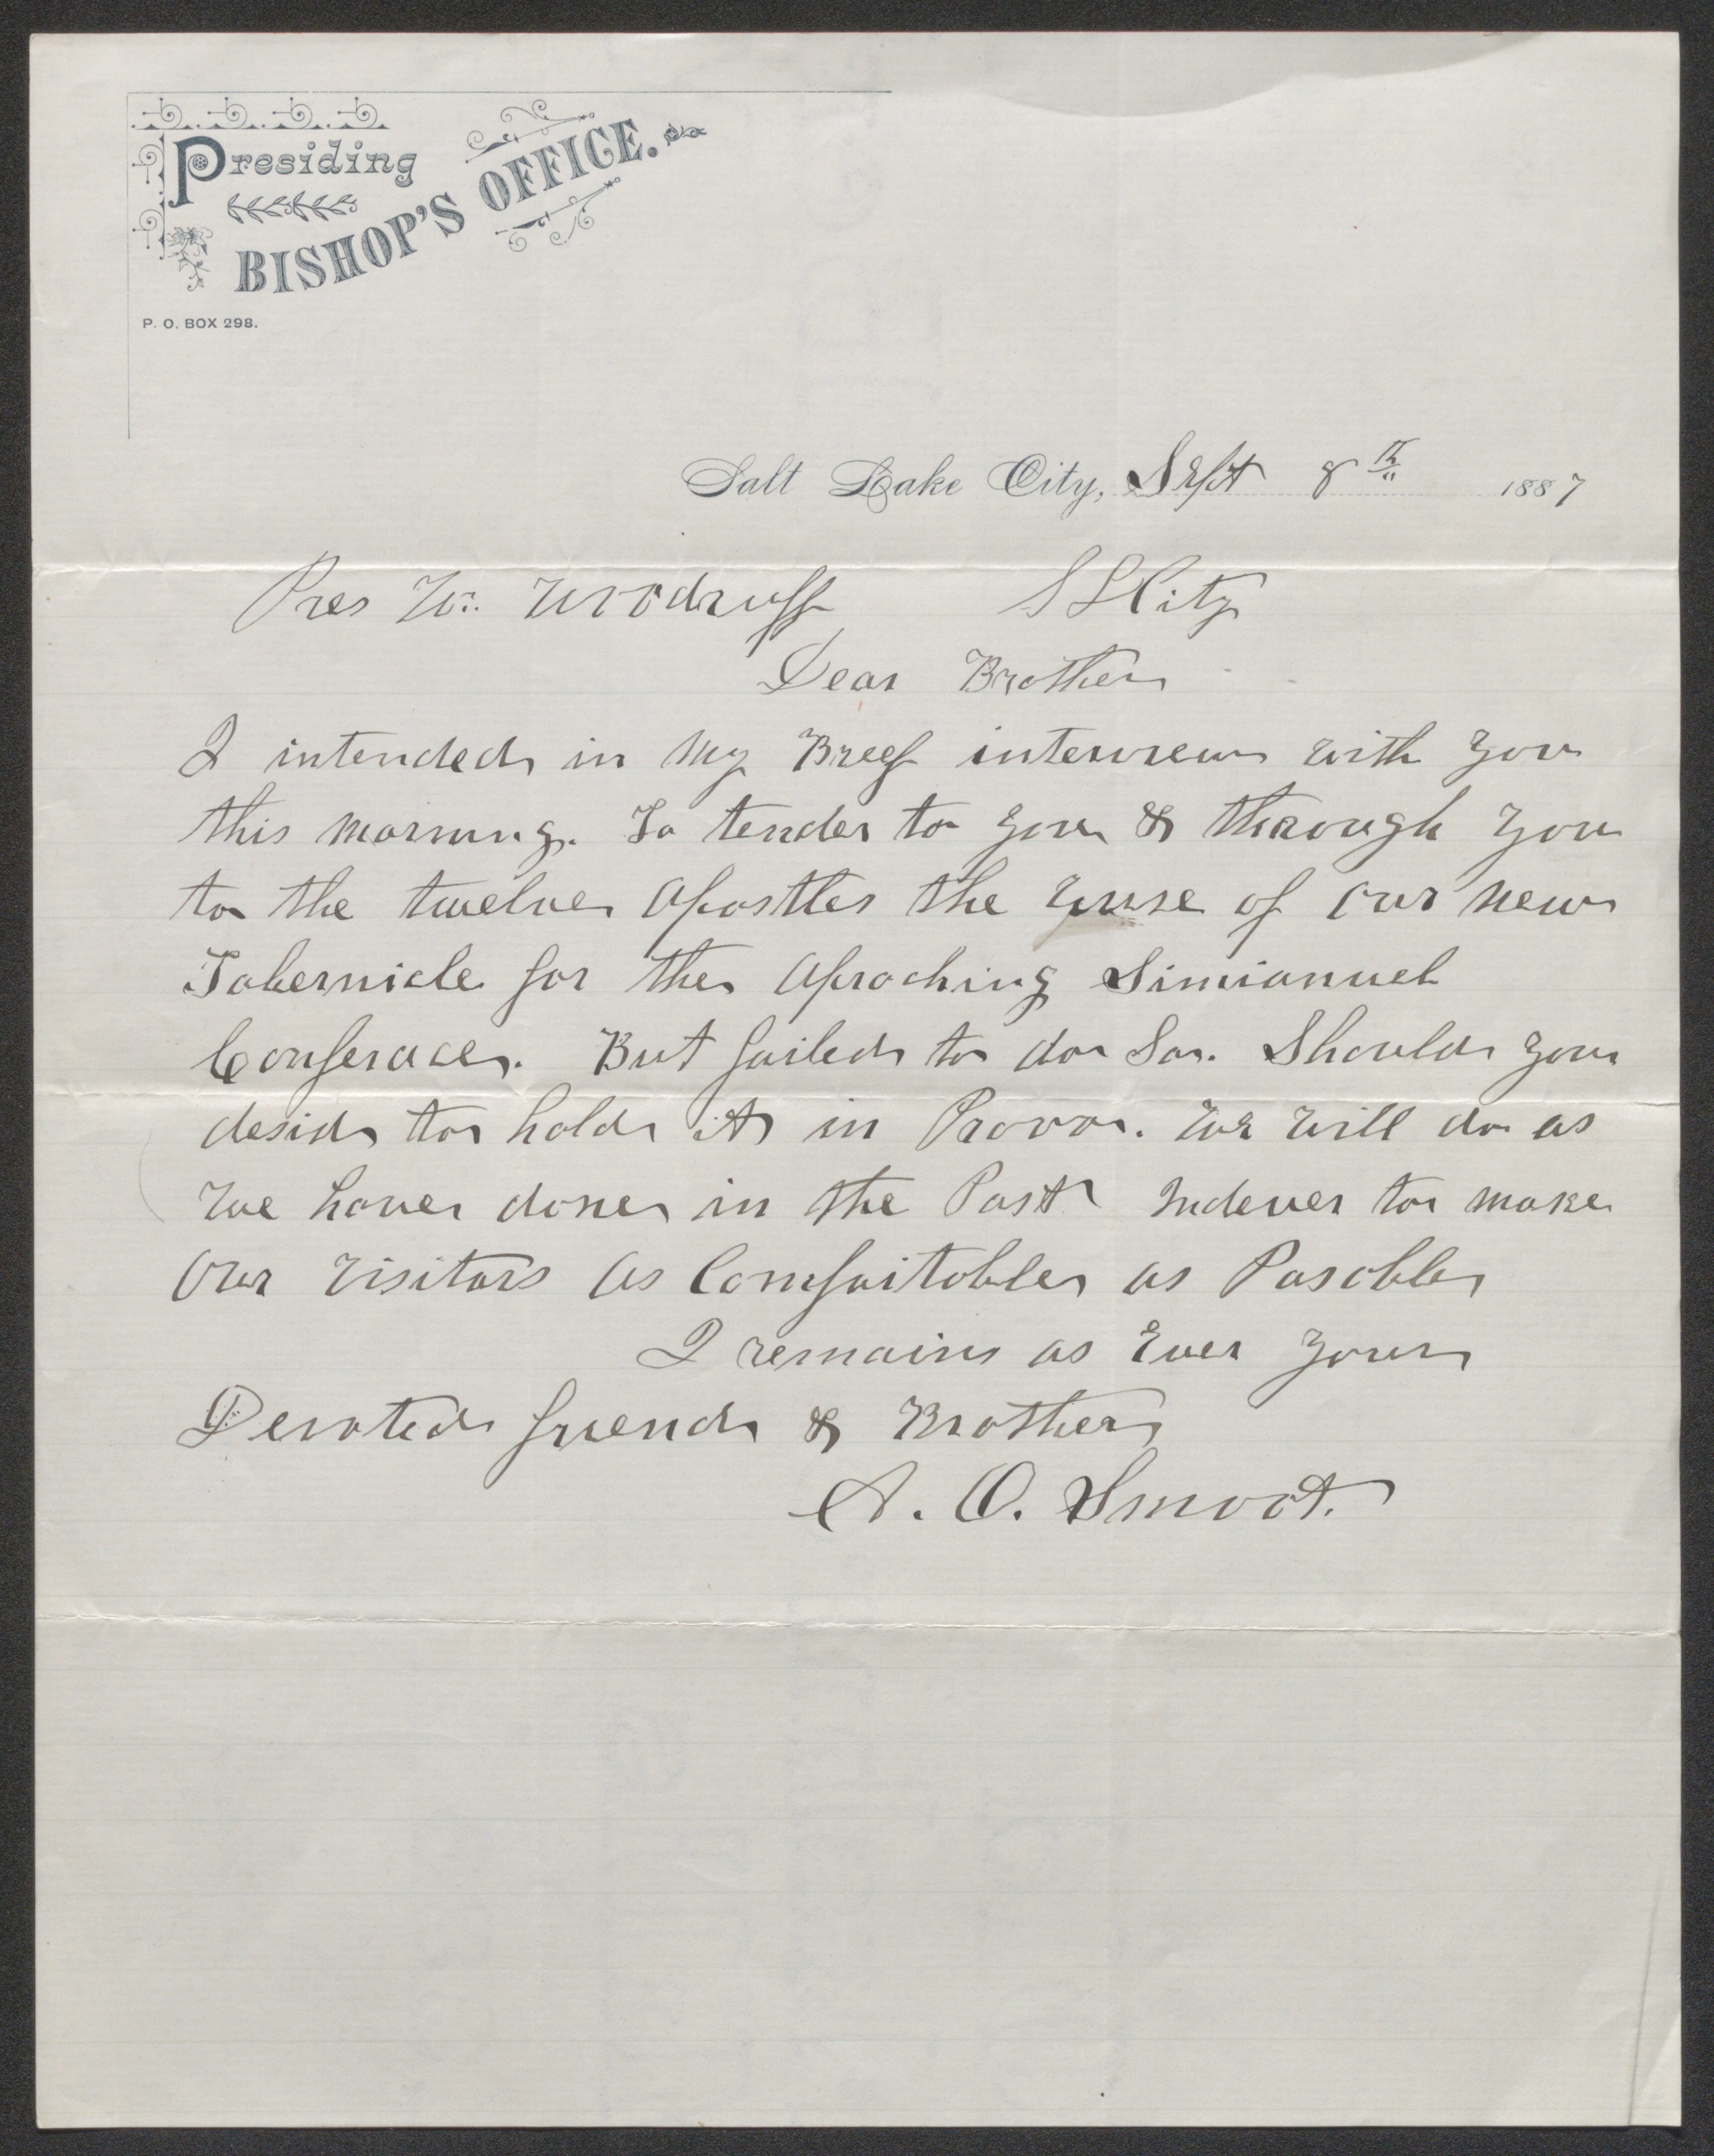 Presiding
BISHOP'S OFFICE.
P. O. BOX 298.
Salt Lake City, Sept 8th 1887
Pres W. Woodruff S L City
Dear Brother
I intended in my Breef interview with you
this morning. To tender to you & through you
to the twelve Apostles the use of our new
Tabernicle for the Aproching Simianuel
Conferace. But failed to do so. Should you
desid to hold it in Provo. We will do as
we have done in the Past Indever to make
Our visitors as Comfuitable as Posable
I remain as Ever your
Devoted friend & Brother
A. O. Smoot.